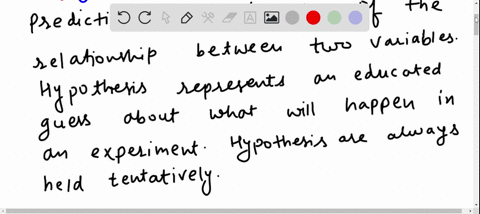 of the
relationship between two variables.
Hypothesis represents an educated
guess about what will happen in
an experiment. Hypothesis are always
held tentatively.